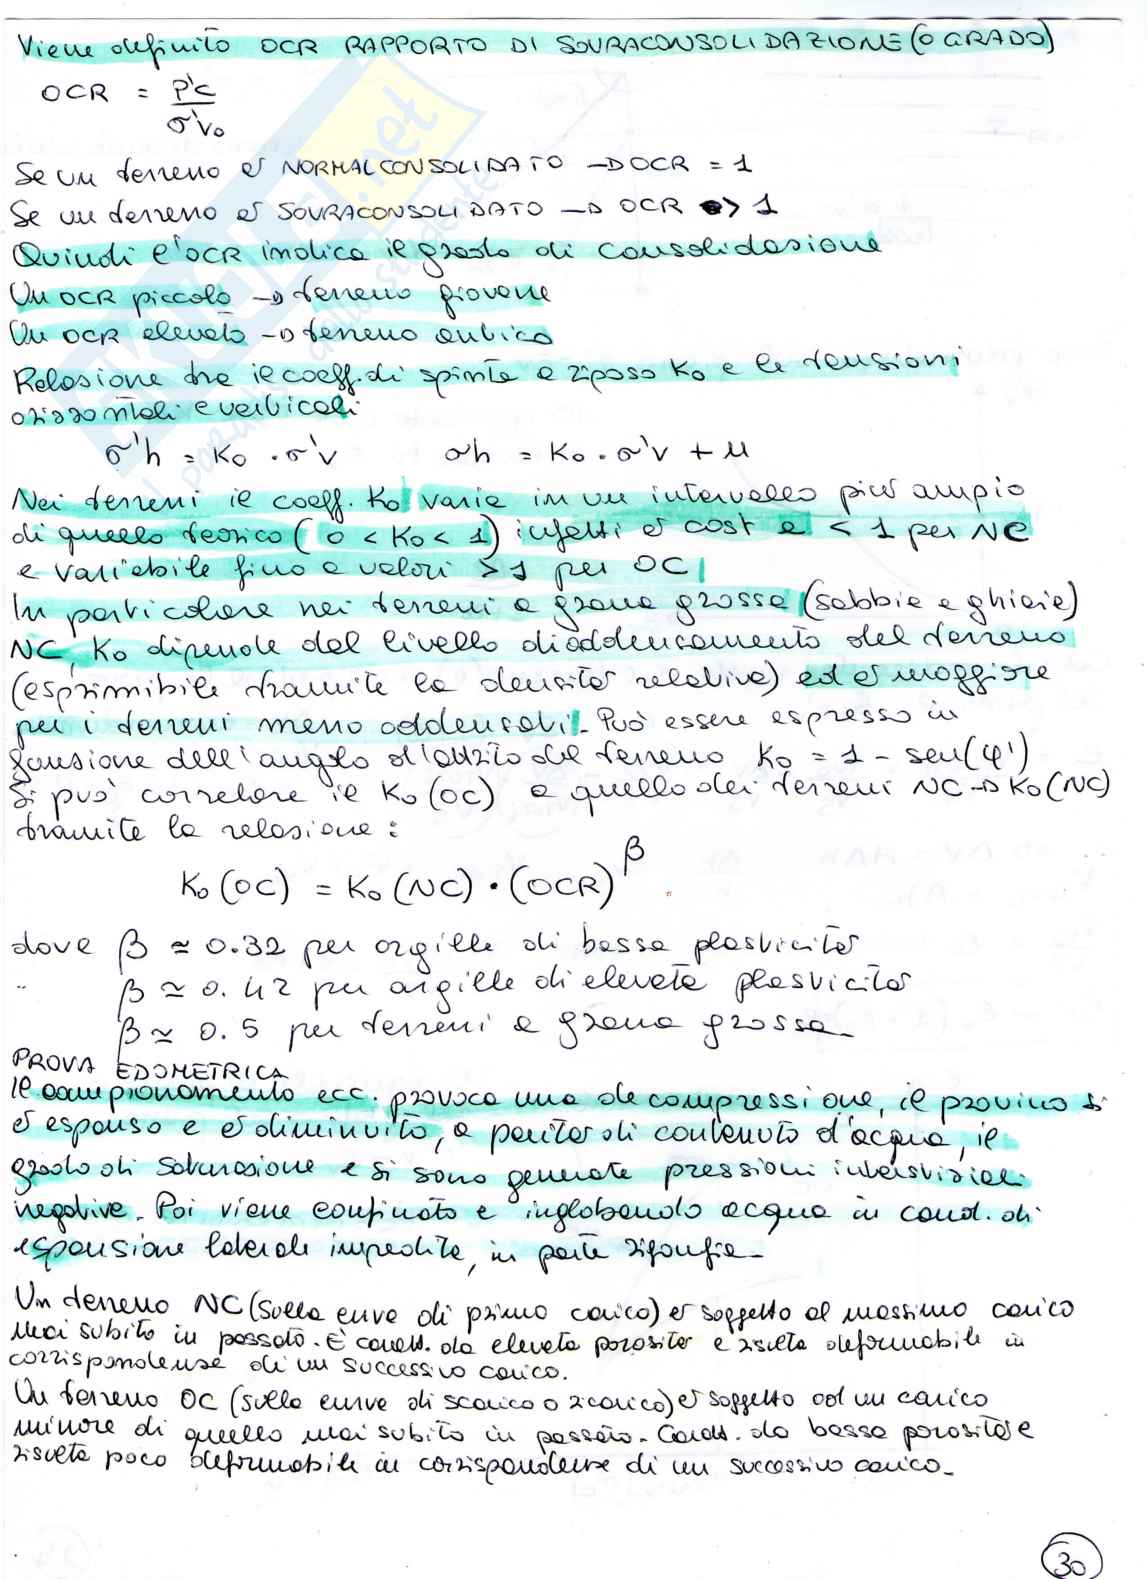 Viene definito OCR RAPPORTO DI SOVRACONSOLIDAZIONE (O GRADO)
OCR = p'c / σ'v₀
Se un terreno è NORMALCONSOLIDATO → OCR = 1
Se un terreno è SOVRACONSOLIDATO → OCR > 1
Quindi l'OCR indica il grado di consolidazione
Un OCR piccolo → terreno giovane
Un OCR elevato → terreno antico
Relazione tra il coeff. di spinta a riposo K₀ e le tensioni
orizzontali e verticali
σ'h = K₀ · σ'v σh = K₀ · σ'v + u
Nei terreni il coeff. K₀ varia in un intervallo più ampio
di quello teorico (0 < K₀ < 1) infatti è cost e < 1 per NC
e variabile fino a valori > 1 per OC
In particolare nei terreni a grana grossa (sabbie e ghiaie)
NC, K₀ dipende dal livello di addensamento del terreno
(esprimibile tramite la densità relativa) ed è maggiore
per i terreni meno addensati. Può essere espresso in
funzione dell'angolo d'attrito del terreno K₀ = 1 - sen(φ')
Si può correlare il K₀(OC) a quello dei terreni NC → K₀(NC)
tramite la relazione:
K₀(OC) = K₀(NC) · (OCR)^β
dove β ≃ 0.32 per argille di bassa plasticità
" β ≃ 0.42 per argille di elevata plasticità
β ≃ 0.5 per terreni a grana grossa
PROVA EDOMETRICA
Il campionamento ecc. provoca una decompressione, il provino si
è espanso e è diminuito, a parità di contenuto d'acqua, il
grado di saturazione e si sono generate pressioni interstiziali
negative. Poi viene confinato e inglobando acqua in cond. di
espansione laterale impedita, in parte rigonfia.
Un terreno NC (sulla curva di primo carico) è soggetto al massimo carico
mai subito in passato. È caratt. da elevata porosità e risulta deformabile in
corrispondenza di un successivo carico.
Un terreno OC (sulla curva di scarico o ricarico) è soggetto ad un carico
minore di quello mai subito in passato. Caratt. da bassa porosità e
risulta poco deformabile in corrispondenza di un successivo carico.
30